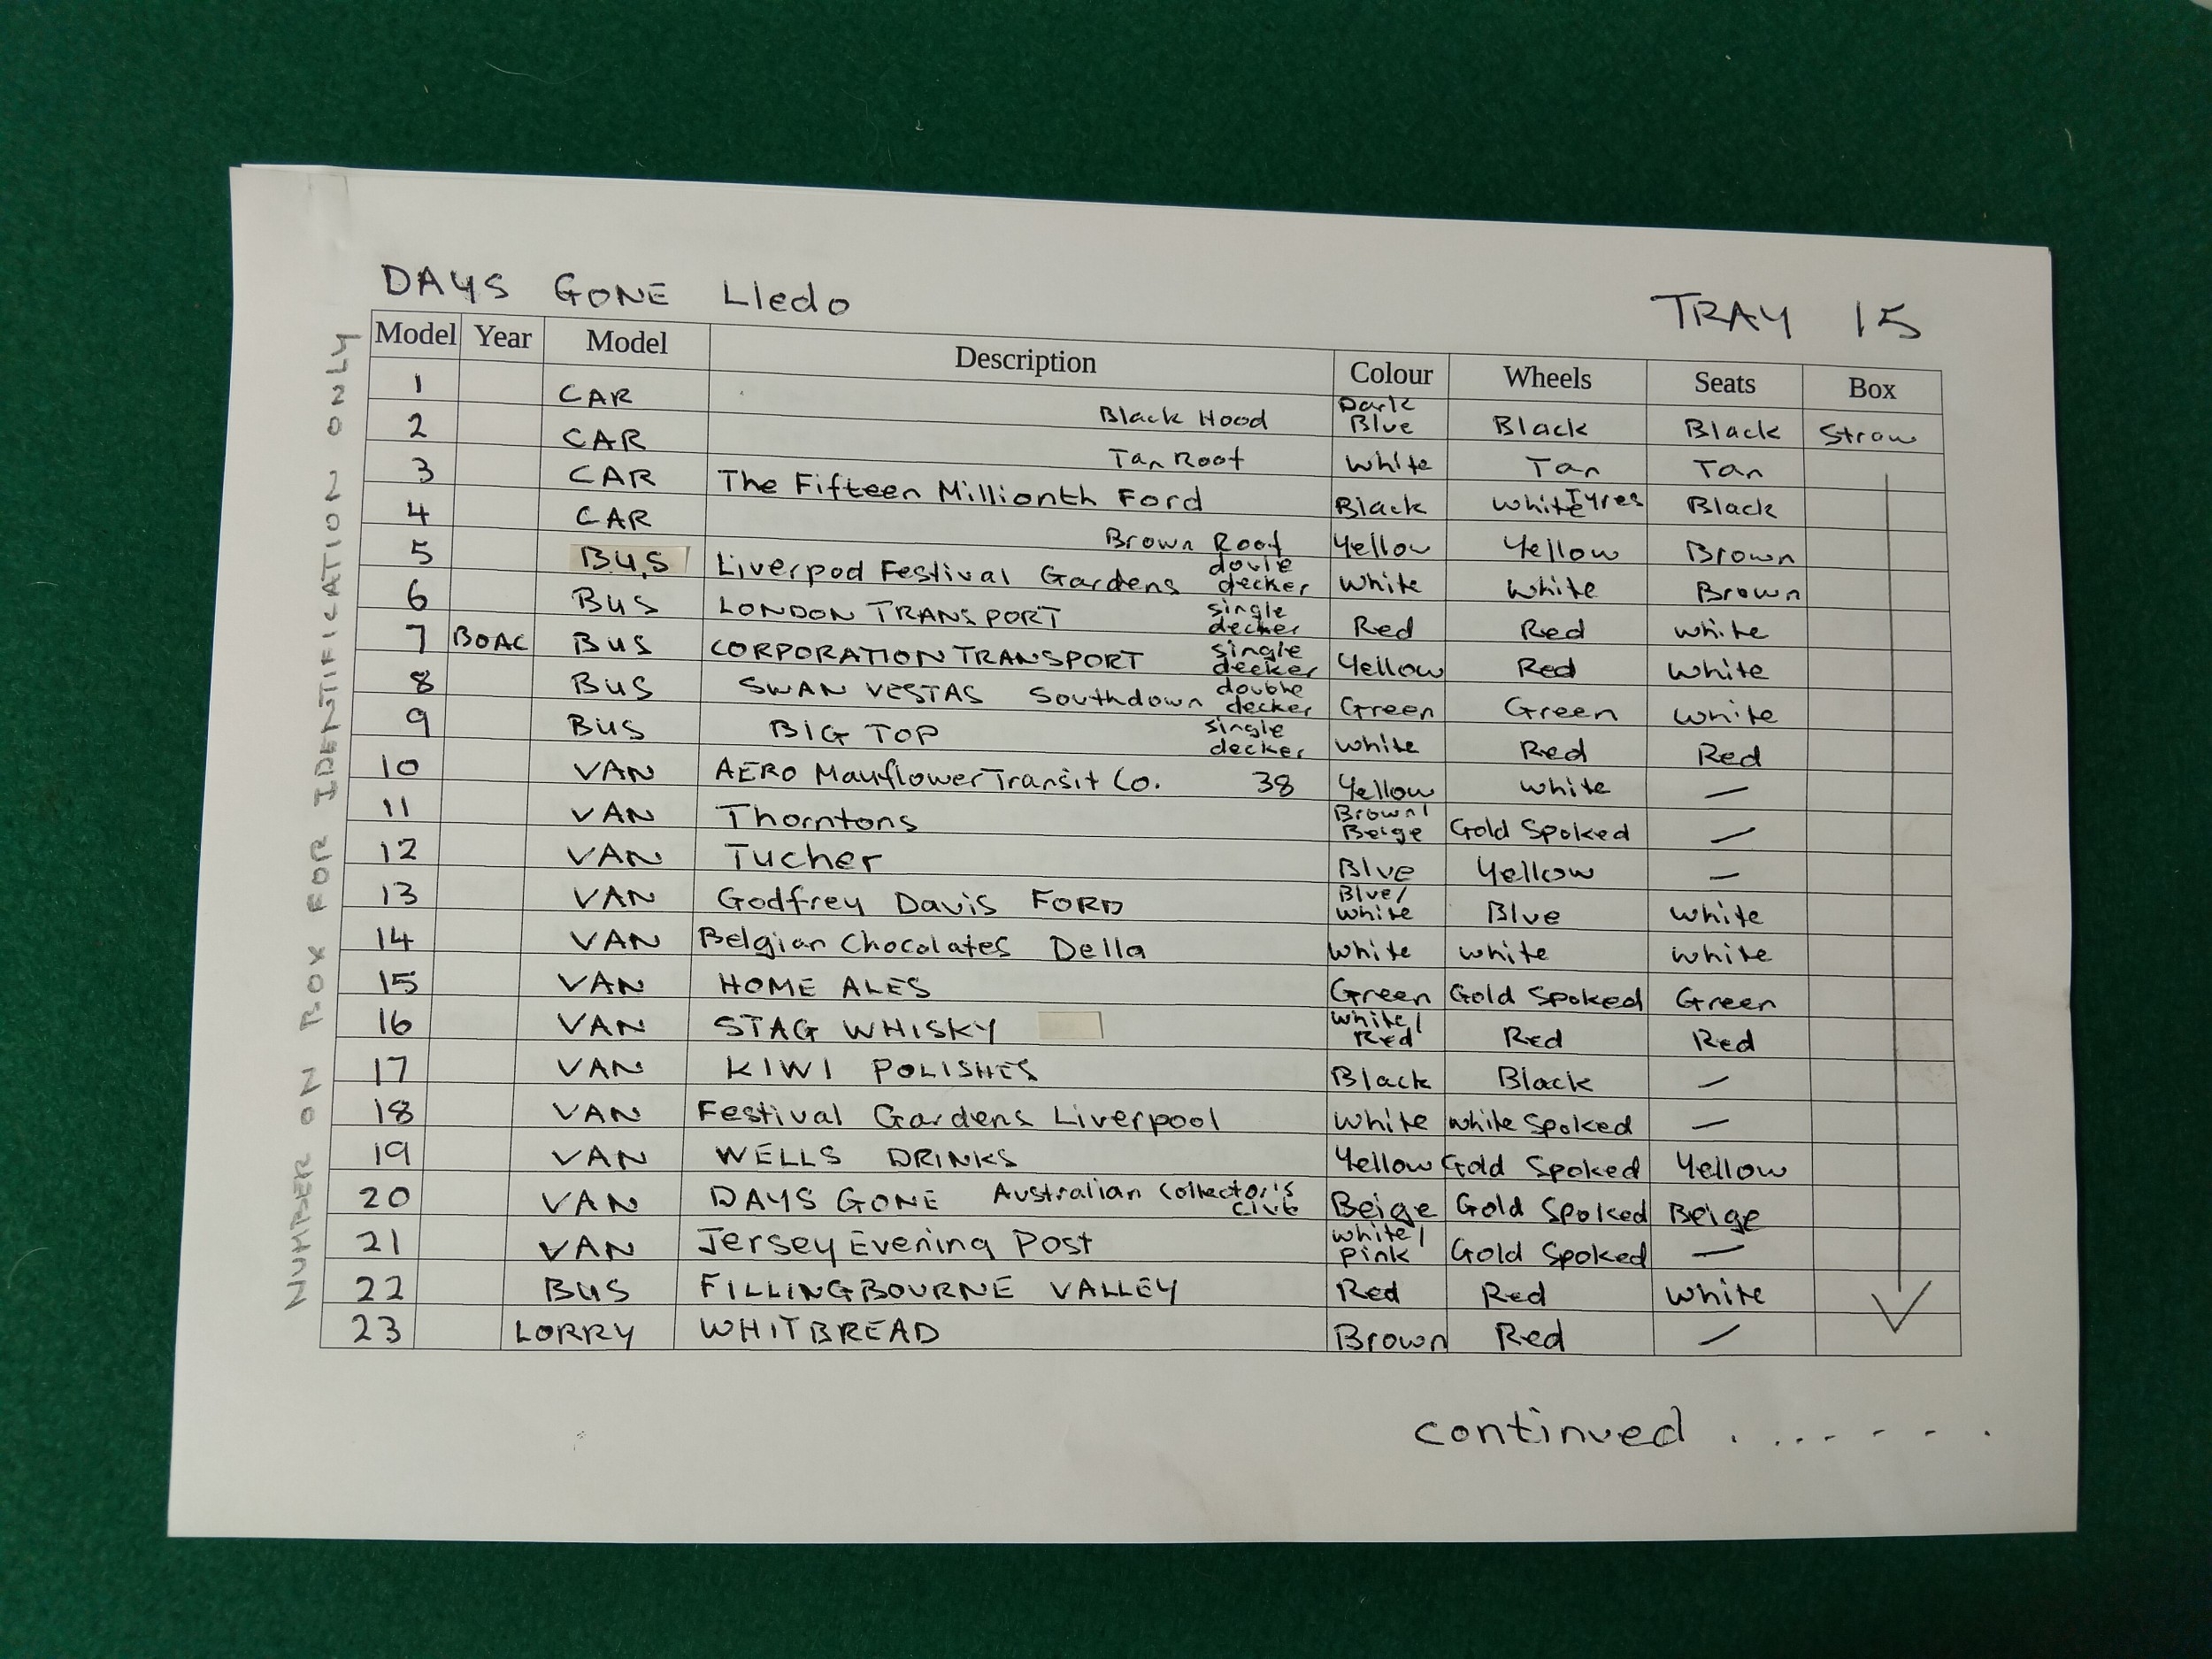 DAYS GONE Lledo TRAY 15
NUMBER ON BOX FOR IDENTIFICATION ONLY
Model Year Model Description Colour Wheels Seats Box
1 CAR Black Hood Dark Blue Black Black Straw
2 CAR Tan Roof White Tan Tan
3 CAR The Fifteen Millionth Ford Black White Tyres Black
4 CAR Brown Roof Yellow Yellow Brown
5 BUS Liverpool Festival Gardens doule decker White White Brown
6 BUS LONDON TRANSPORT single decker Red Red White
7 BOAC BUS CORPORATION TRANSPORT single decker Yellow Red White
8 BUS SWAN VESTAS Southdown double decker Green Green White
9 BUS BIG TOP single decker White Red Red
10 VAN AERO Mayflower Transit Co. 38 Yellow White —
11 VAN Thorntons Brown/ Beige Gold Spoked —
12 VAN Tucher Blue Yellow —
13 VAN Godfrey Davis FORD Blue/ White Blue White
14 VAN Belgian Chocolates Della White White White
15 VAN HOME ALES Green Gold Spoked Green
16 VAN STAG WHISKY White/ Red Red Red
17 VAN KIWI POLISHES Black Black —
18 VAN Festival Gardens Liverpool White White Spoked —
19 VAN WELLS DRINKS Yellow Gold Spoked Yellow
20 VAN DAYS GONE Australian Collector's Club Beige Gold Spoked Beige
21 VAN Jersey Evening Post White/ Pink Gold Spoked —
22 BUS FILLINGBOURNE VALLEY Red Red White
23 LORRY WHITBREAD Brown Red —
continued . . . . . . .